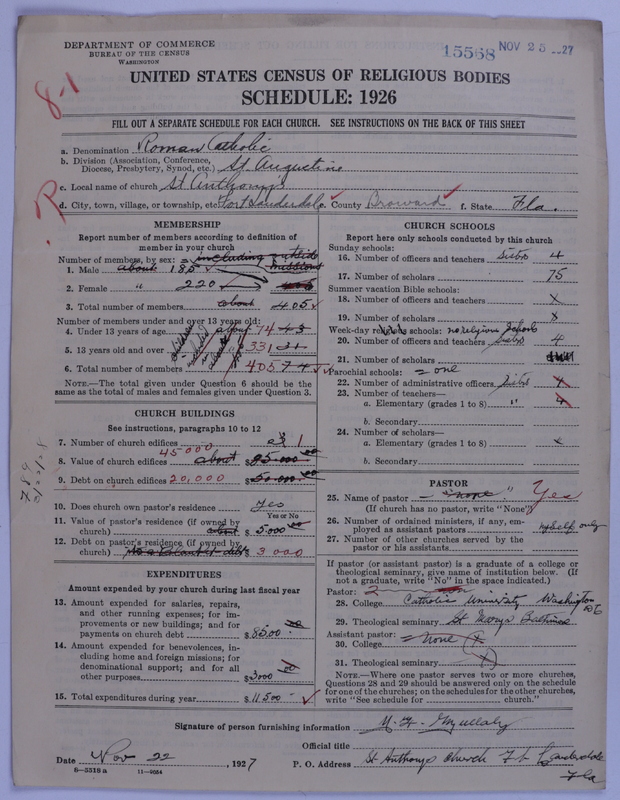 DEPARTMENT OF COMMERCE
BUREAU OF THE CENSUS
WASHINGTON
15568 NOV 25 1927
8-1
UNITED STATES CENSUS OF RELIGIOUS BODIES
SCHEDULE: 1926
FILL OUT A SEPARATE SCHEDULE FOR EACH CHURCH. SEE INSTRUCTIONS ON THE BACK OF THIS SHEET
a. Denomination Roman Catholic
b. Division (Association, Conference,
Diocese, Presbytery, Synod, etc.) St Augustine
c. Local name of church St Anthony's
R
d. City, town, village, or township, etc. Fort Lauderdale e. County Broward f. State Fla.
MEMBERSHIP
Report number of members according to definition of
member in your church
Number of members, by sex: including outside
missions
1. Male about 185
2. Female " 220
3. Total number of members about 405
Number of members under and over 13 years old:
4. Under 13 years of age about 74 43
5. 13 years old and over 331 31
6. Total number of members 405 74
NOTE.—The total given under Question 6 should be
same as the total of males and females given under Question 3.
CHURCH BUILDINGS
See instructions, paragraphs 10 to 12
7. Number of church edifices 1
45000
8. Value of church edifices about $
9. Debt on church edifices 20,000 $
10. Does church own pastor's residence? Yes
Yes or No
11. Value of pastor's residence (if owned by
church) about $ 5000 00
12. Debt on pastor's residence (if owned by
church) $ 3000
EXPENDITURES
Amount expended by your church during last fiscal year
13. Amount expended for salaries, repairs,
and other running expenses; for im-
provements or new buildings; and for
payments on church debt $ 8500
14. Amount expended for benevolences, in-
cluding home and foreign missions; for
denominational support; and for all
other purposes $ 3000 00
15. Total expenditures during year $ 11.500
CHURCH SCHOOLS
Report here only schools conducted by this church
Sunday schools:
16. Number of officers and teachers Sisters 4
17. Number of scholars 75
Summer vacation Bible schools:
18. Number of officers and teachers x
19. Number of scholars x
Week-day religious schools: no religious schools
20. Number of officers and teachers Sisters 4
21. Number of scholars
Parochial schools: = one
22. Number of administrative officers Sisters 4
23. Number of teachers—
a. Elementary (grades 1 to 8) " 4
b. Secondary
24. Number of scholars—
a. Elementary (grades 1 to 8) x
b. Secondary
PASTOR
25. Name of pastor "none" Yes
(If church has no pastor, write "None")
26. Number of ordained ministers, if any, em-
ployed as assistant pastors myself only
27. Number of other churches served by the
pastor or his assistants
If pastor (or assistant pastor) is a graduate of a college or
theological seminary, give name of institution below. (If
not a graduate, write "No" in the space indicated.)
Pastor: 2
28. College Catholic University Washington DC
29. Theological seminary St Marys Baltimore
Assistant pastor: = None
30. College x
31. Theological seminary x
NOTE.—Where one pastor serves two or more churches,
Questions 28 and 29 should be answered only on the schedule
for one of the churches; on the schedules for the other churches,
write "See schedule for ........ church."
Signature of person furnishing information
Official title
Date Nov 22, 1927 P. O. Address St Anthonys Church Ft Lauderdale
Fla
8-3318 a 11-9054